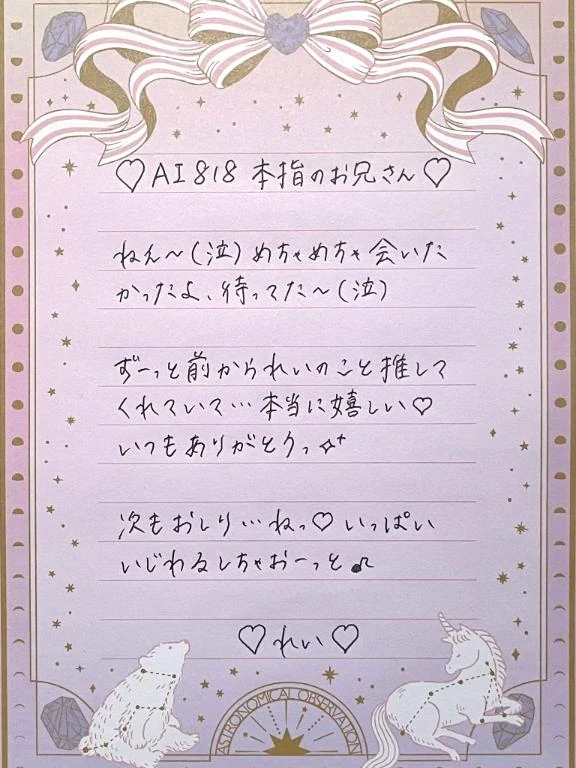 ♡AI818 本指のお兄さん♡
ねえ〜(泣)めちゃめちゃ会いた
かったよ、待ってた〜(泣)
ずーっと前かられいのこと推して
くれていて…本当に嬉しい♡
いつもありがとうっ✧⁺
次もおしり…ねっ♡いっぱい
いじわるしちゃおーっと♪
♡れい♡
ASTRONOMICAL OBSERVATION